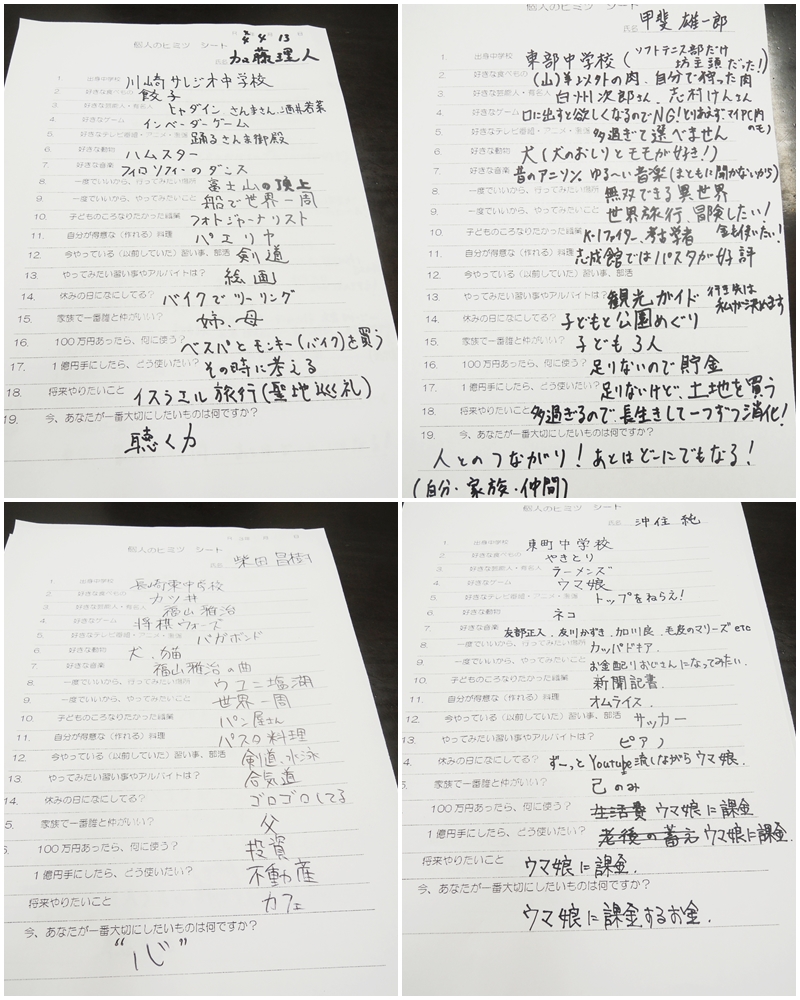 個人のヒミツ シート
氏名 加藤理人
1. 出身中学校 川崎サレジオ中学校
2. 好きな食べもの 餃子
3. 好きな芸能人・有名人 ヒャダイン さんまさん
4. 好きなゲーム インベーダーゲーム
5. 好きなテレビ番組・アニメ・漫画 踊るさんま御殿
6. 好きな動物 ハムスター
7. 好きな音楽 フィロソフィーのダンス
8. 一度でいいから、行ってみたい場所 富士山の頂上
9. 一度でいいから、やってみたいこと 船で世界一周
10. 子どものころなりたかった職業 フォトジャーナリスト
11. 自分が得意な（作れる）料理 パエリヤ
12. 今やっている（以前していた）習い事、部活 剣道
13. やってみたい習い事やアルバイトは？ 絵画
14. 休みの日になにしてる？ バイクでツーリング
15. 家族で一番誰と仲がいい？ 姉、母
16. 100万円あったら、何に使う？ ベスパとモンキー(バイク)を買う
17. 1億円手にしたら、どう使いたい？ その時に考える
18. 将来やりたいこと イスラエル旅行(聖地巡礼)
19. 今、あなたが一番大切にしたいものは何ですか？
聴く力
個人のヒミツ シート
氏名 甲斐 雄一郎
1. 出身中学校 東部中学校 (ソフトテニス部だけ坊主頭だった!)
2. 好きな食べもの (山)羊 の肉、自分で狩った肉
3. 好きな芸能人・有名人 白州次郎さん、志村けんさん
4. 好きなゲーム 口に出すと欲しくなるのでNG! とりあえず、マイPC(内のモノ)
5. 好きなテレビ番組・アニメ・漫画 多過ぎて選べません
6. 好きな動物 犬(犬のおしりとモモが好き!)
7. 好きな音楽 昔のアニソン、ゆる〜い音楽(まともに聞かないから)
8. 一度でいいから、行ってみたい場所 無双できる異世界
9. 一度でいいから、やってみたいこと 世界旅行、冒険したい!
10. 子どものころなりたかった職業 K-1ファイター、考古学者 金も使いたい!
11. 自分が得意な（作れる）料理 志成館ではパスタが好評
12. 今やっている（以前していた）習い事、部活
13. やってみたい習い事やアルバイトは？ 観光ガイド 行き先は私が決めます
14. 休みの日になにしてる？ 子どもと公園めぐり
15. 家族で一番誰と仲がいい？ 子ども3人
16. 100万円あったら、何に使う？ 足りないので貯金
17. 1億円手にしたら、どう使いたい？ 足りないけど、土地を買う
18. 将来やりたいこと 多過ぎるので、長生きして一つずつ消化!
19. 今、あなたが一番大切にしたいものは何ですか？
人とのつながり! あとはどーにでもなる!
(自分・家族・仲間)
個人のヒミツ シート
氏名 柴田 昌樹
1. 出身中学校 長崎東中学校
2. 好きな食べもの カツ丼
3. 好きな芸能人・有名人 福山雅治
4. 好きなゲーム 将棋ウォーズ
5. 好きなテレビ番組・アニメ・漫画 バガボンド
6. 好きな動物 犬、猫
7. 好きな音楽 福山雅治の曲
8. 一度でいいから、行ってみたい場所 ウユニ塩湖
9. 一度でいいから、やってみたいこと 世界一周
10. 子どものころなりたかった職業 パン屋さん
11. 自分が得意な（作れる）料理 パスタ料理
12. 今やっている（以前していた）習い事、部活 剣道、水泳
13. やってみたい習い事やアルバイトは？ 合気道
14. 休みの日になにしてる？ ゴロゴロしてる
5. 家族で一番誰と仲がいい？ 父
100万円あったら、何に使う？ 投資
1億円手にしたら、どう使いたい？ 不動産
将来やりたいこと カフェ
今、あなたが一番大切にしたいものは何ですか？
“心”
個人のヒミツ シート
氏名 沖住 純
1. 出身中学校 東町中学校
2. 好きな食べもの やきとり
3. 好きな芸能人・有名人 ラーメンズ
4. 好きなゲーム ウマ娘
5. 好きなテレビ番組・アニメ・漫画 トップをねらえ!
6. 好きな動物 ネコ
7. 好きな音楽 友部正人、友川かずき、加川良、毛皮のマリーズ etc
8. 一度でいいから、行ってみたい場所 カッパドキア.
9. 一度でいいから、やってみたいこと お金配りおじさんになってみたい.
10. 子どものころなりたかった職業 新聞記書.
11. 自分が得意な（作れる）料理 オムライス.
12. 今やっている（以前していた）習い事、部活 サッカー
13. やってみたい習い事やアルバイトは？ ピアノ
4. 休みの日になにしてる？ ずーっとYoutube流しながらウマ娘.
5. 家族で一番誰と仲がいい？ 己のみ
100万円あったら、何に使う？ 生活費 ウマ娘に課金
1億円手にしたら、どう使いたい？ 老後の蓄え ウマ娘に課金.
将来やりたいこと ウマ娘に課金.
今、あなたが一番大切にしたいものは何ですか？
ウマ娘に課金するお金.